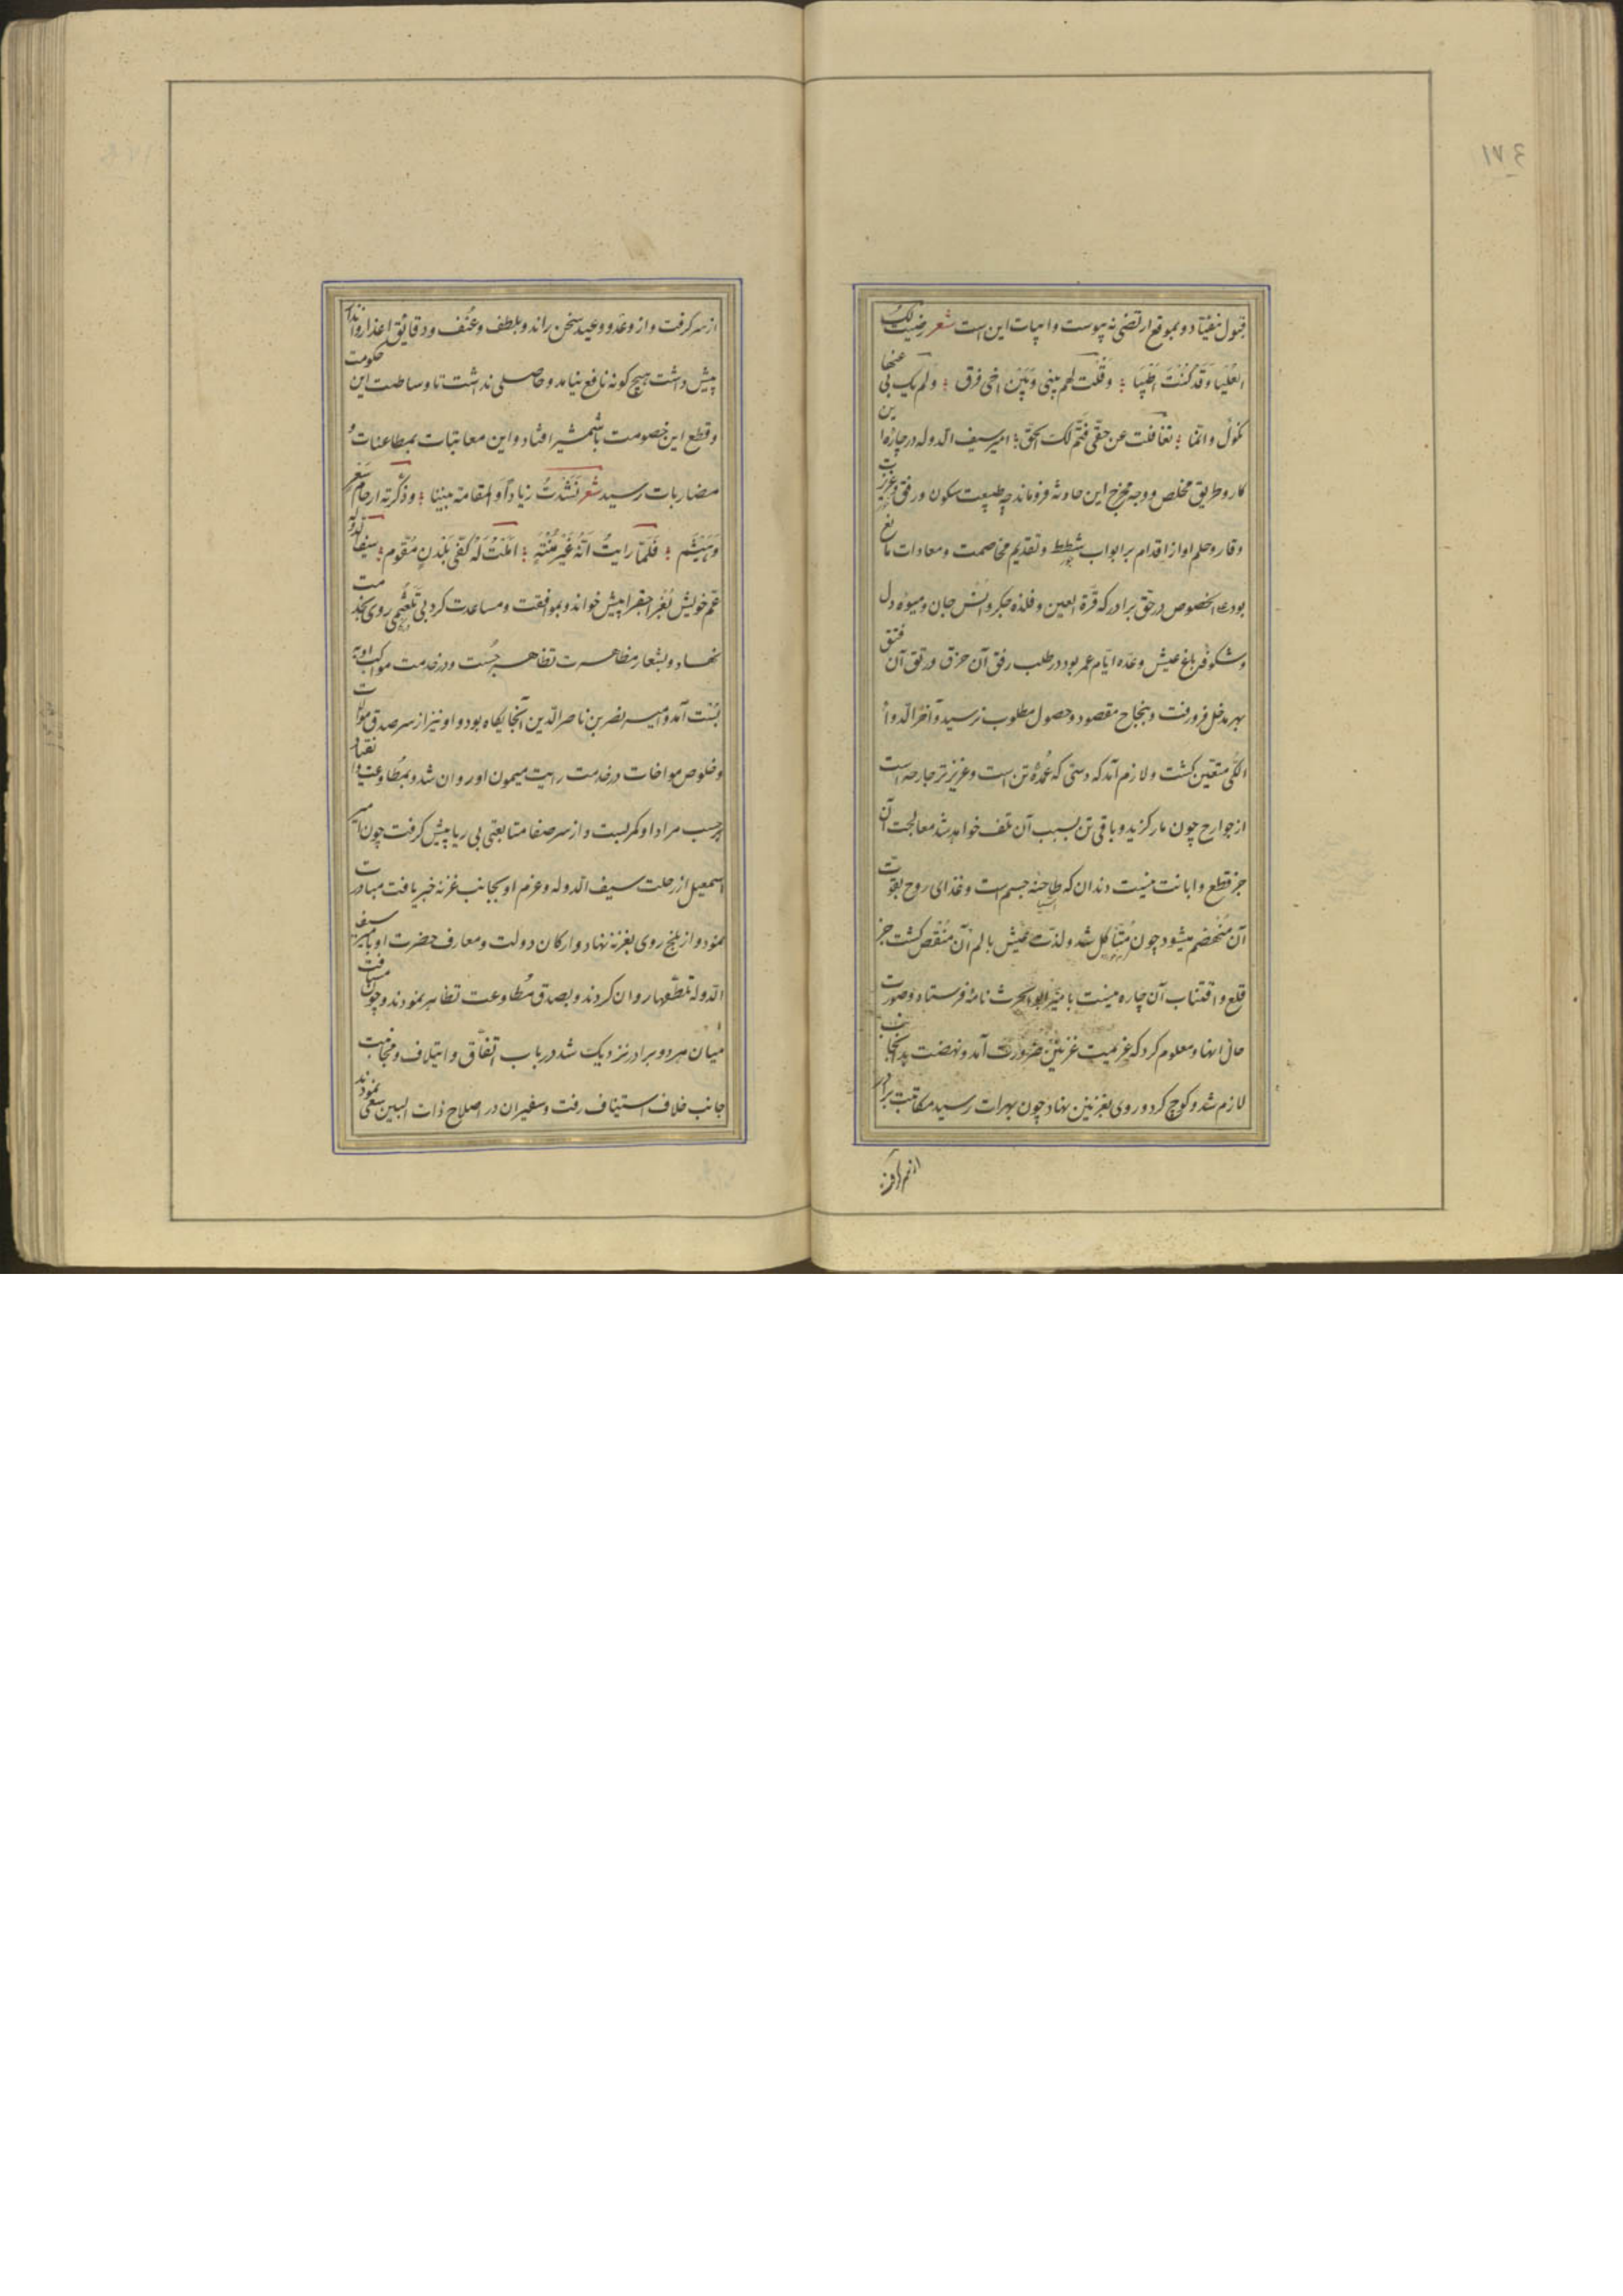 ١٧٤
قبول نیفتاد و بموقع ارتضی نه پیوست و ابیات این است شعر رضیت لک
العلیا و قد کنت اهلها ؛ و قلت لهم بینی و بین اخی فرق ؛ و لم یک بی عنها
نکول و انما ؛ تغافلت عن حقی فتم لک الحق ؛ امیر سیف الدوله در چاره این
کار و طریق مخلص و وجه مخرج این حادثه فروماند چه طبیعت سکون و رفق و غریزت
وقار و حلم او از اقدام بر ابواب شطط و تقدیم مخاصمت و معادات مانع
بود علی الخصوص در حق برادر که قرة العین و فلذه جکر و انس جان و میوه دل
و شکوفه باغ عیش و عده ایام عمر بود در طلب رفق آن خرق و رتق آن فتق
بهر مدخل فرو رفت و بنجاح مقصود و حصول مطلوب نرسید و آخر الدواء
الکی متعین کشت و لازم آمد که دستی که عمده تن است و عزیزتر جارحه است
از جوارح چون مار کزید و باقی تن بسبب آن تلف خواهد شد معالجت آن
جز قطع و ابانت نیست دندان که طاحنه جسم است و غذای روح بقوت
آن منهضم میشود چون متاکل شد و لذت عیش بالم آن منغص کشت جز
قلع و اقتناب آن چاره نیست بامیر ابو الحرث نامه فرستاد و صورت
حال انها و معلوم کرد که عزیمت غزنین ضرورت آمد و نهضت بدانجانب
لازم شد و کوچ کرد و روی بغزنین نهاد چون بهرات رسید مکاتبت برادر
از سر کرفت
از سر کرفت و از وعد و وعید سخن راند و بلطف و عنف و دقایق اعذار و انذار
پیش داشت هیچ کونه نافع نیامد و حاصلی نداشت تا وساطت این حکومت
و قطع این خصومت با شمشیر افتاد و این معاتبات بمطاعنات و
مضاربات رسید شعر نشدت زیادا و المقامة بیننا ؛ و ذکرته ارحام سعر
و هیثم ؛ فلما رایت انه غیر منته ؛ املت له کفی بلدن مقوم ؛ سیف الدوله
عم خویش بغراجق را پیش خواند و بموافقت و مساعدت کرد بی تلعثمی روی بخدمت
نهاد و بشعار مظاهرت تظاهر جست و در خدمت مواکب او به
بست آمد و امیر نصر بن ناصر الدین آنجایکاه بود و او نیز از سر صدق موالات
و خلوص مواخات در خدمت رایت میمون او روان شد و بمطاوعت و انقیاد
بر حسب مراد او کمر بست و از سر صفا متابعتی بی ریا پیش کرفت چون امیر
اسمعیل از رحلت سیف الدوله و عزم او بجانب غزنه خبر یافت مبادرت
نمود و از بلخ روی بغزنه نهاد و ارکان دولت و معارف حضرت او بامیر سیف
الدوله ملطفها روان کردند و بصدق مطاوعت تظاهر نمودند و چون مسافت
میان هر دو برادر نزدیک شد در باب اتفاق و ایتلاف و مجانبت
جانب خلاف استیناف رفت و سفیران در اصلاح ذات البین سعی نمودند